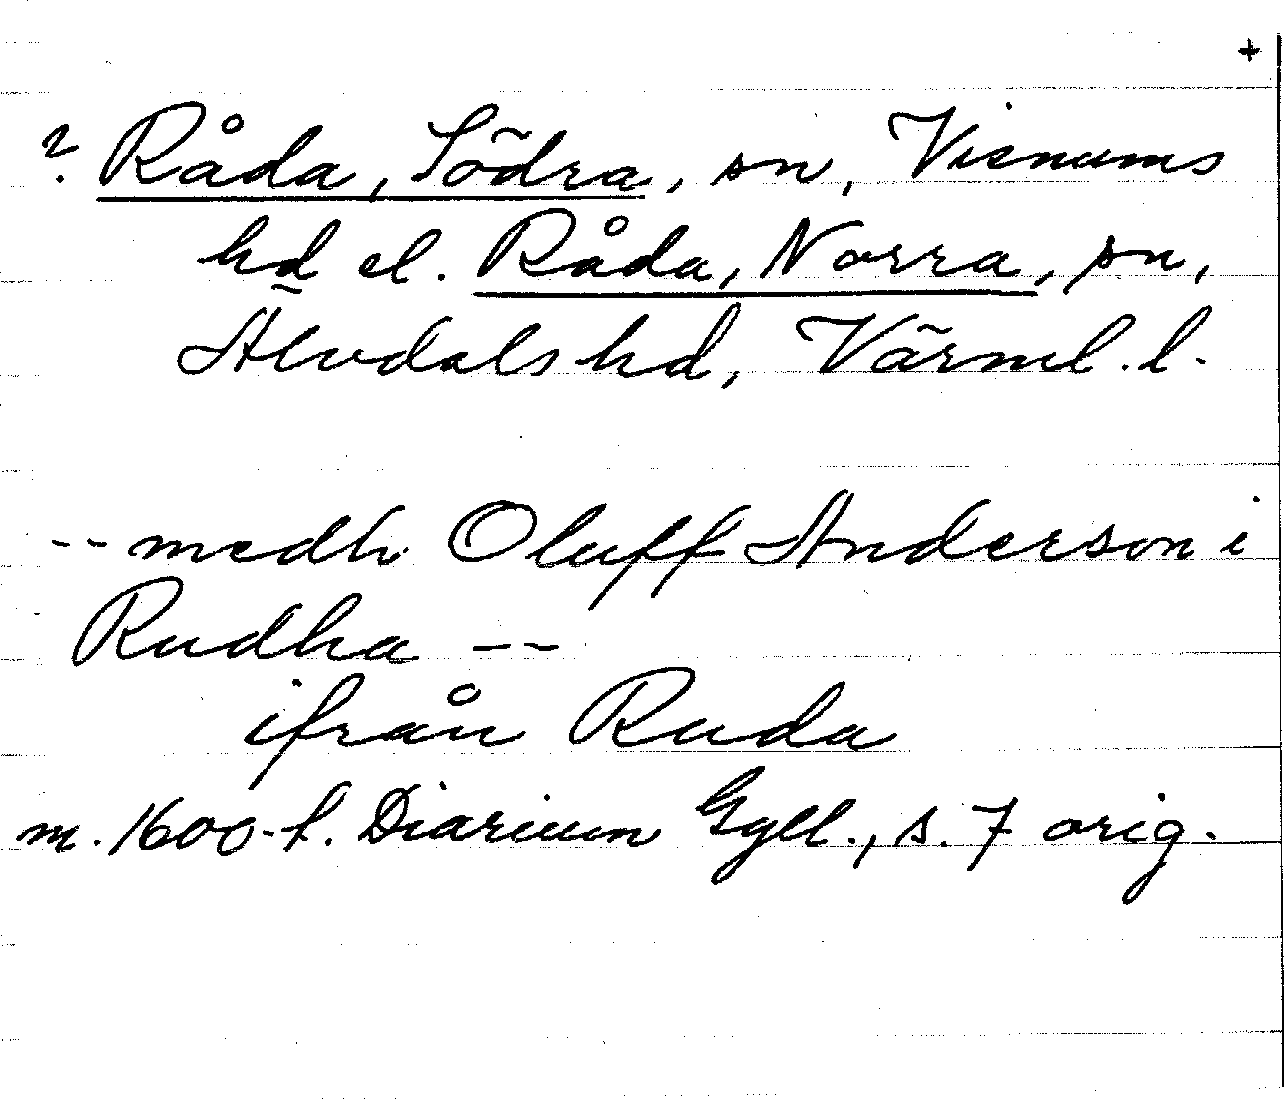 +
? Råda, Södra, sn, Visnums
hd el. Råda, Norra, sn,
Älvdals hd, Värml. l.
-- medh Oluff Anderson i
Rudha --
ifrån Ruda
m. 1600-t. Diarium Gyll., s. 7 orig.